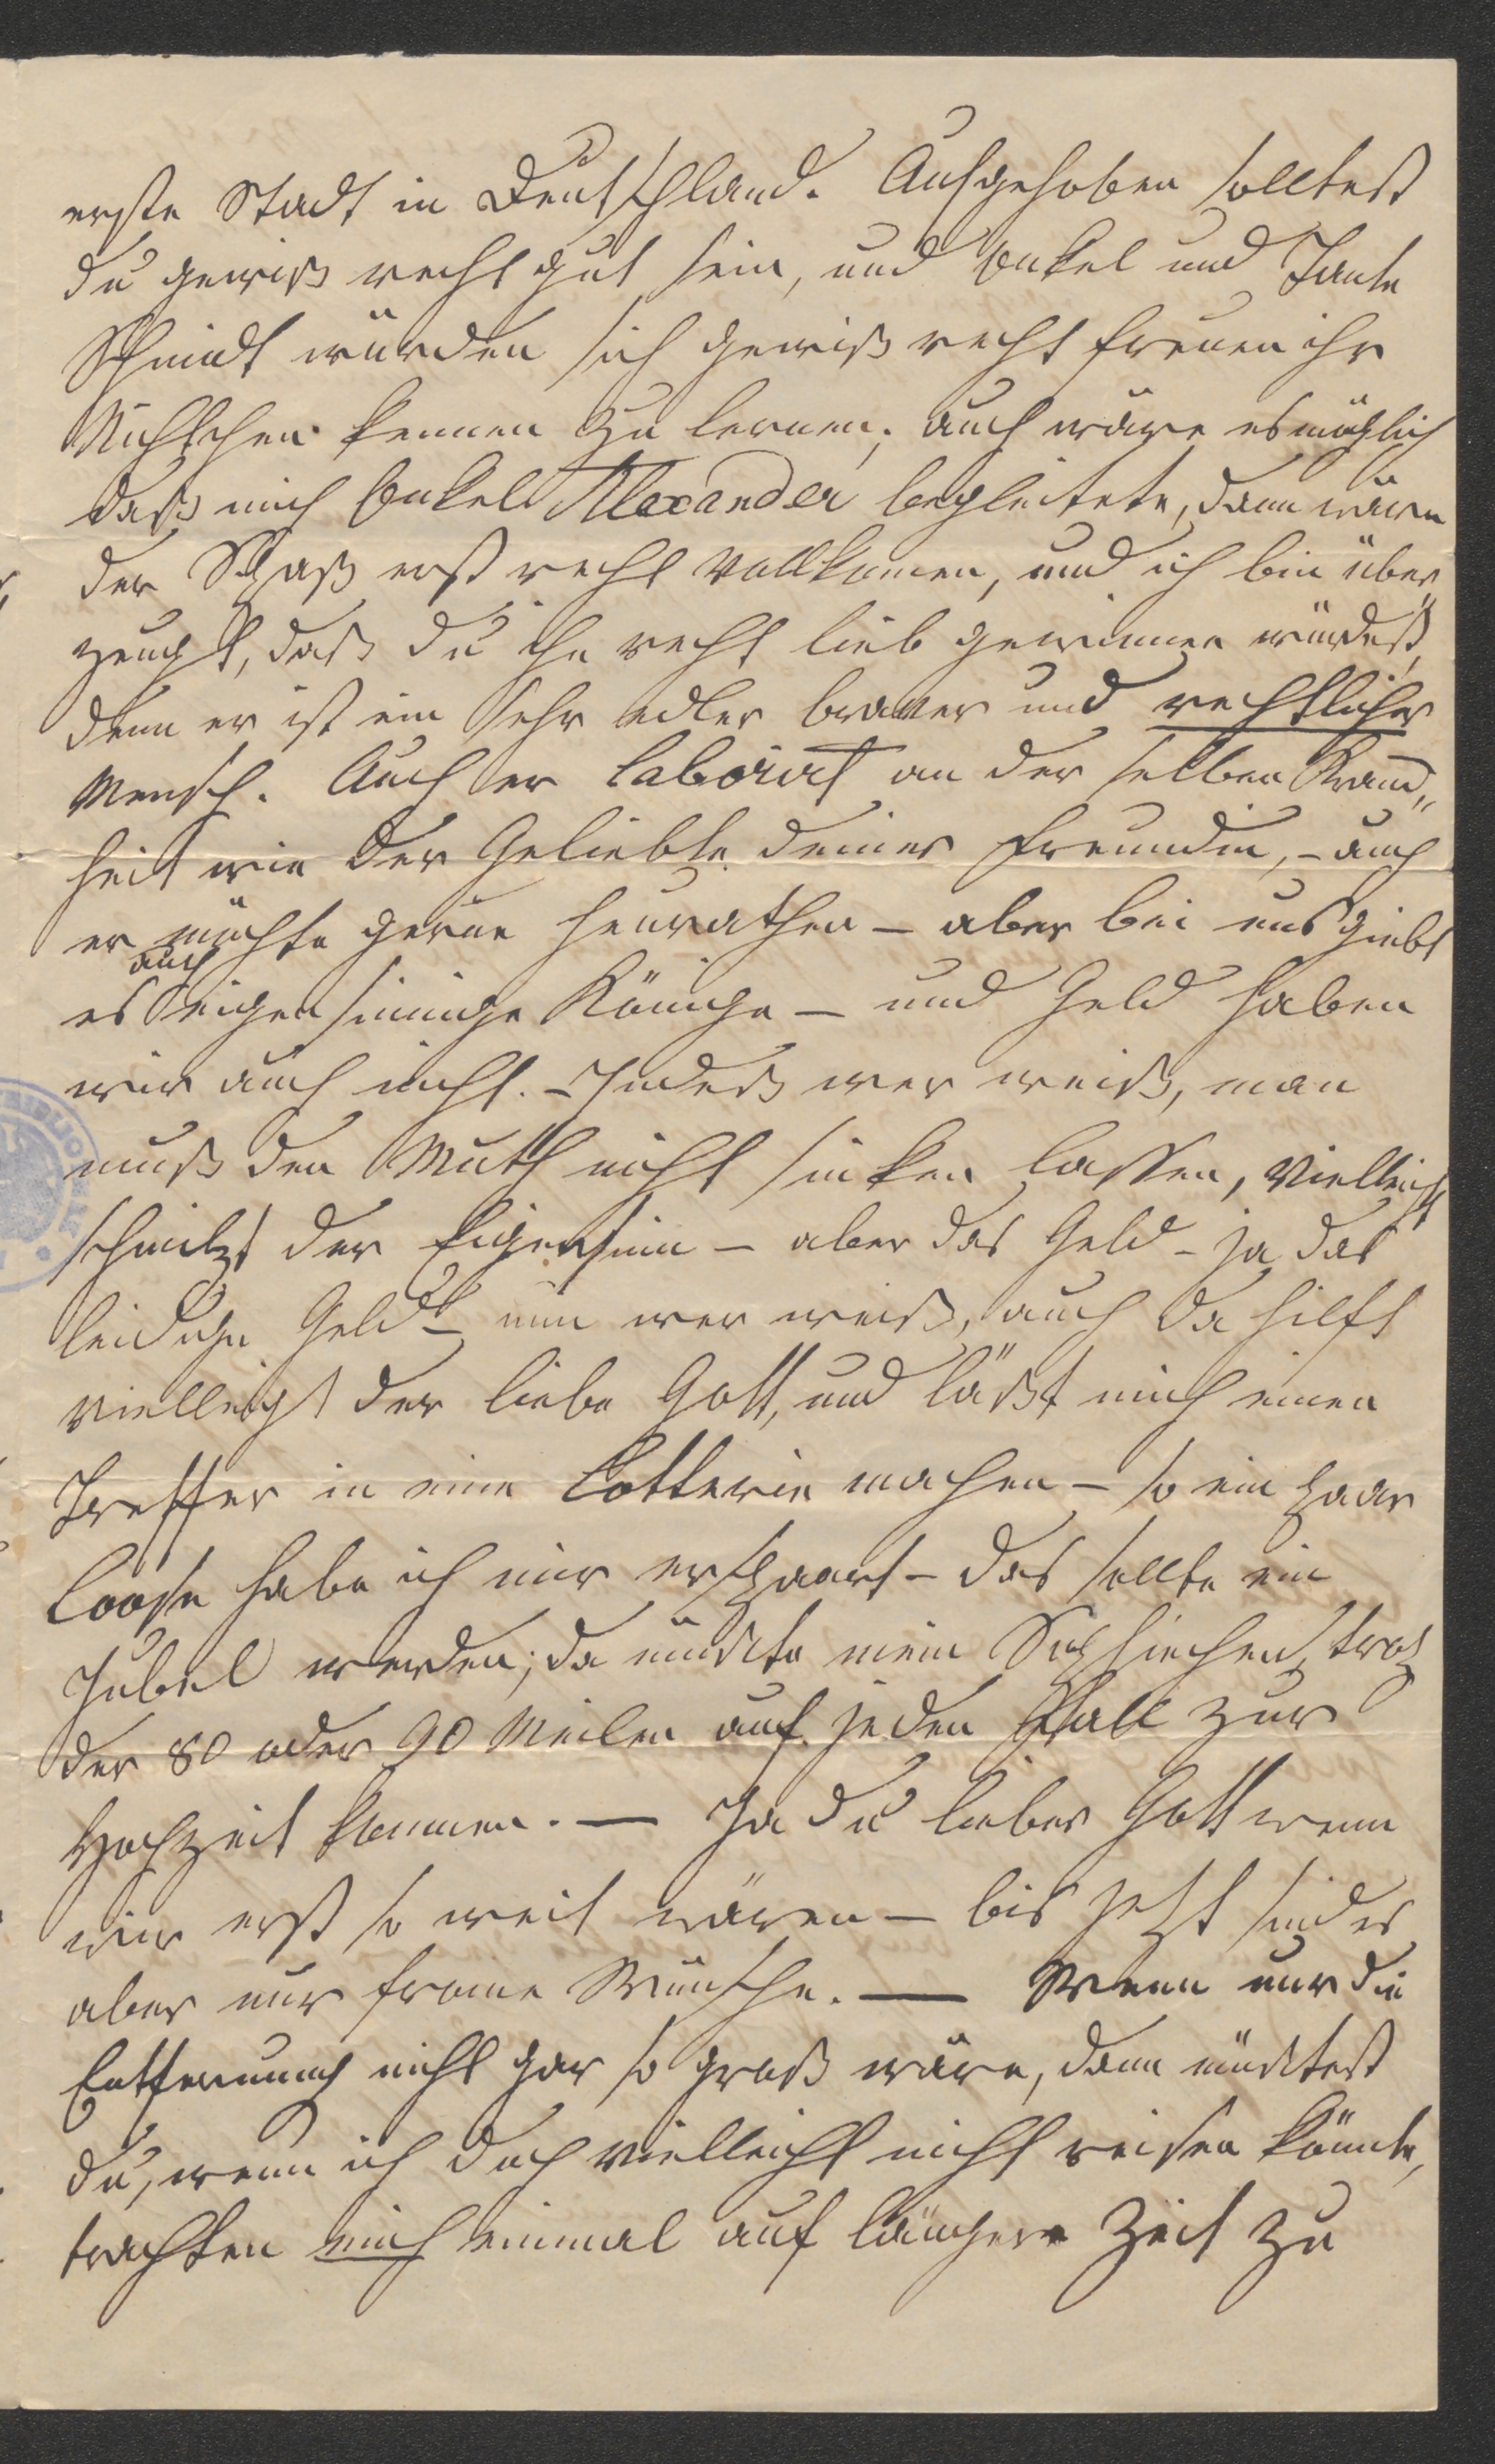 erste Stadt in Deutschland. Aufgehoben solltest
du gewiß recht gut sein, und Onkel und Tante
Schmidt würden sich gewiß recht freuen ihr
Nichtchen kennen zu lernen, auch wäre es möglich
daß mich Onkel Alexander begleitete, dann wäre
der Spaß erst recht vollkomen, und ich bin über„
zeugt, daß du ihn recht lieb gewinnen würdest,
denn er ist ein sehr edler braver und rechtlicher
Mensch. Auch er laborirt an der selben Krank„
heit wie der Geliebte deiner Freundin, – auch
er möchte gerne heurathen – aber bei uns giebt
es auch eigensinnige Könige – und Geld haben
wir auch nicht. – Indeß wer weiß, man
muß den Muth nicht sinken lassen, vielleicht
schmilzt der Eigensinn – aber das Geld – ja das
leidige Geld – nun wer weiß, auch da hilft
vielleicht der liebe Gott, und läßt mich einen
Treffer in eine Lotterie machen – so ein paar
Loose habe ich mir erspaart – das sollte ein
Jubel werden; da müßte mein Sophiechen trotz
der 80 oder 90 Meilen auf jeden Fall zur
Hochzeit kommen. — Ja du lieber Gott wenn
wir erst so weit wären – bis jetzt sind es
aber nur frome Wünsche. — Wenn nur die
Entfernung nicht gar so groß wäre, dann müßtest
du, wenn ich doch vielleicht nicht reisen könnte,
trachten mich einmal auf längere Zeit zu